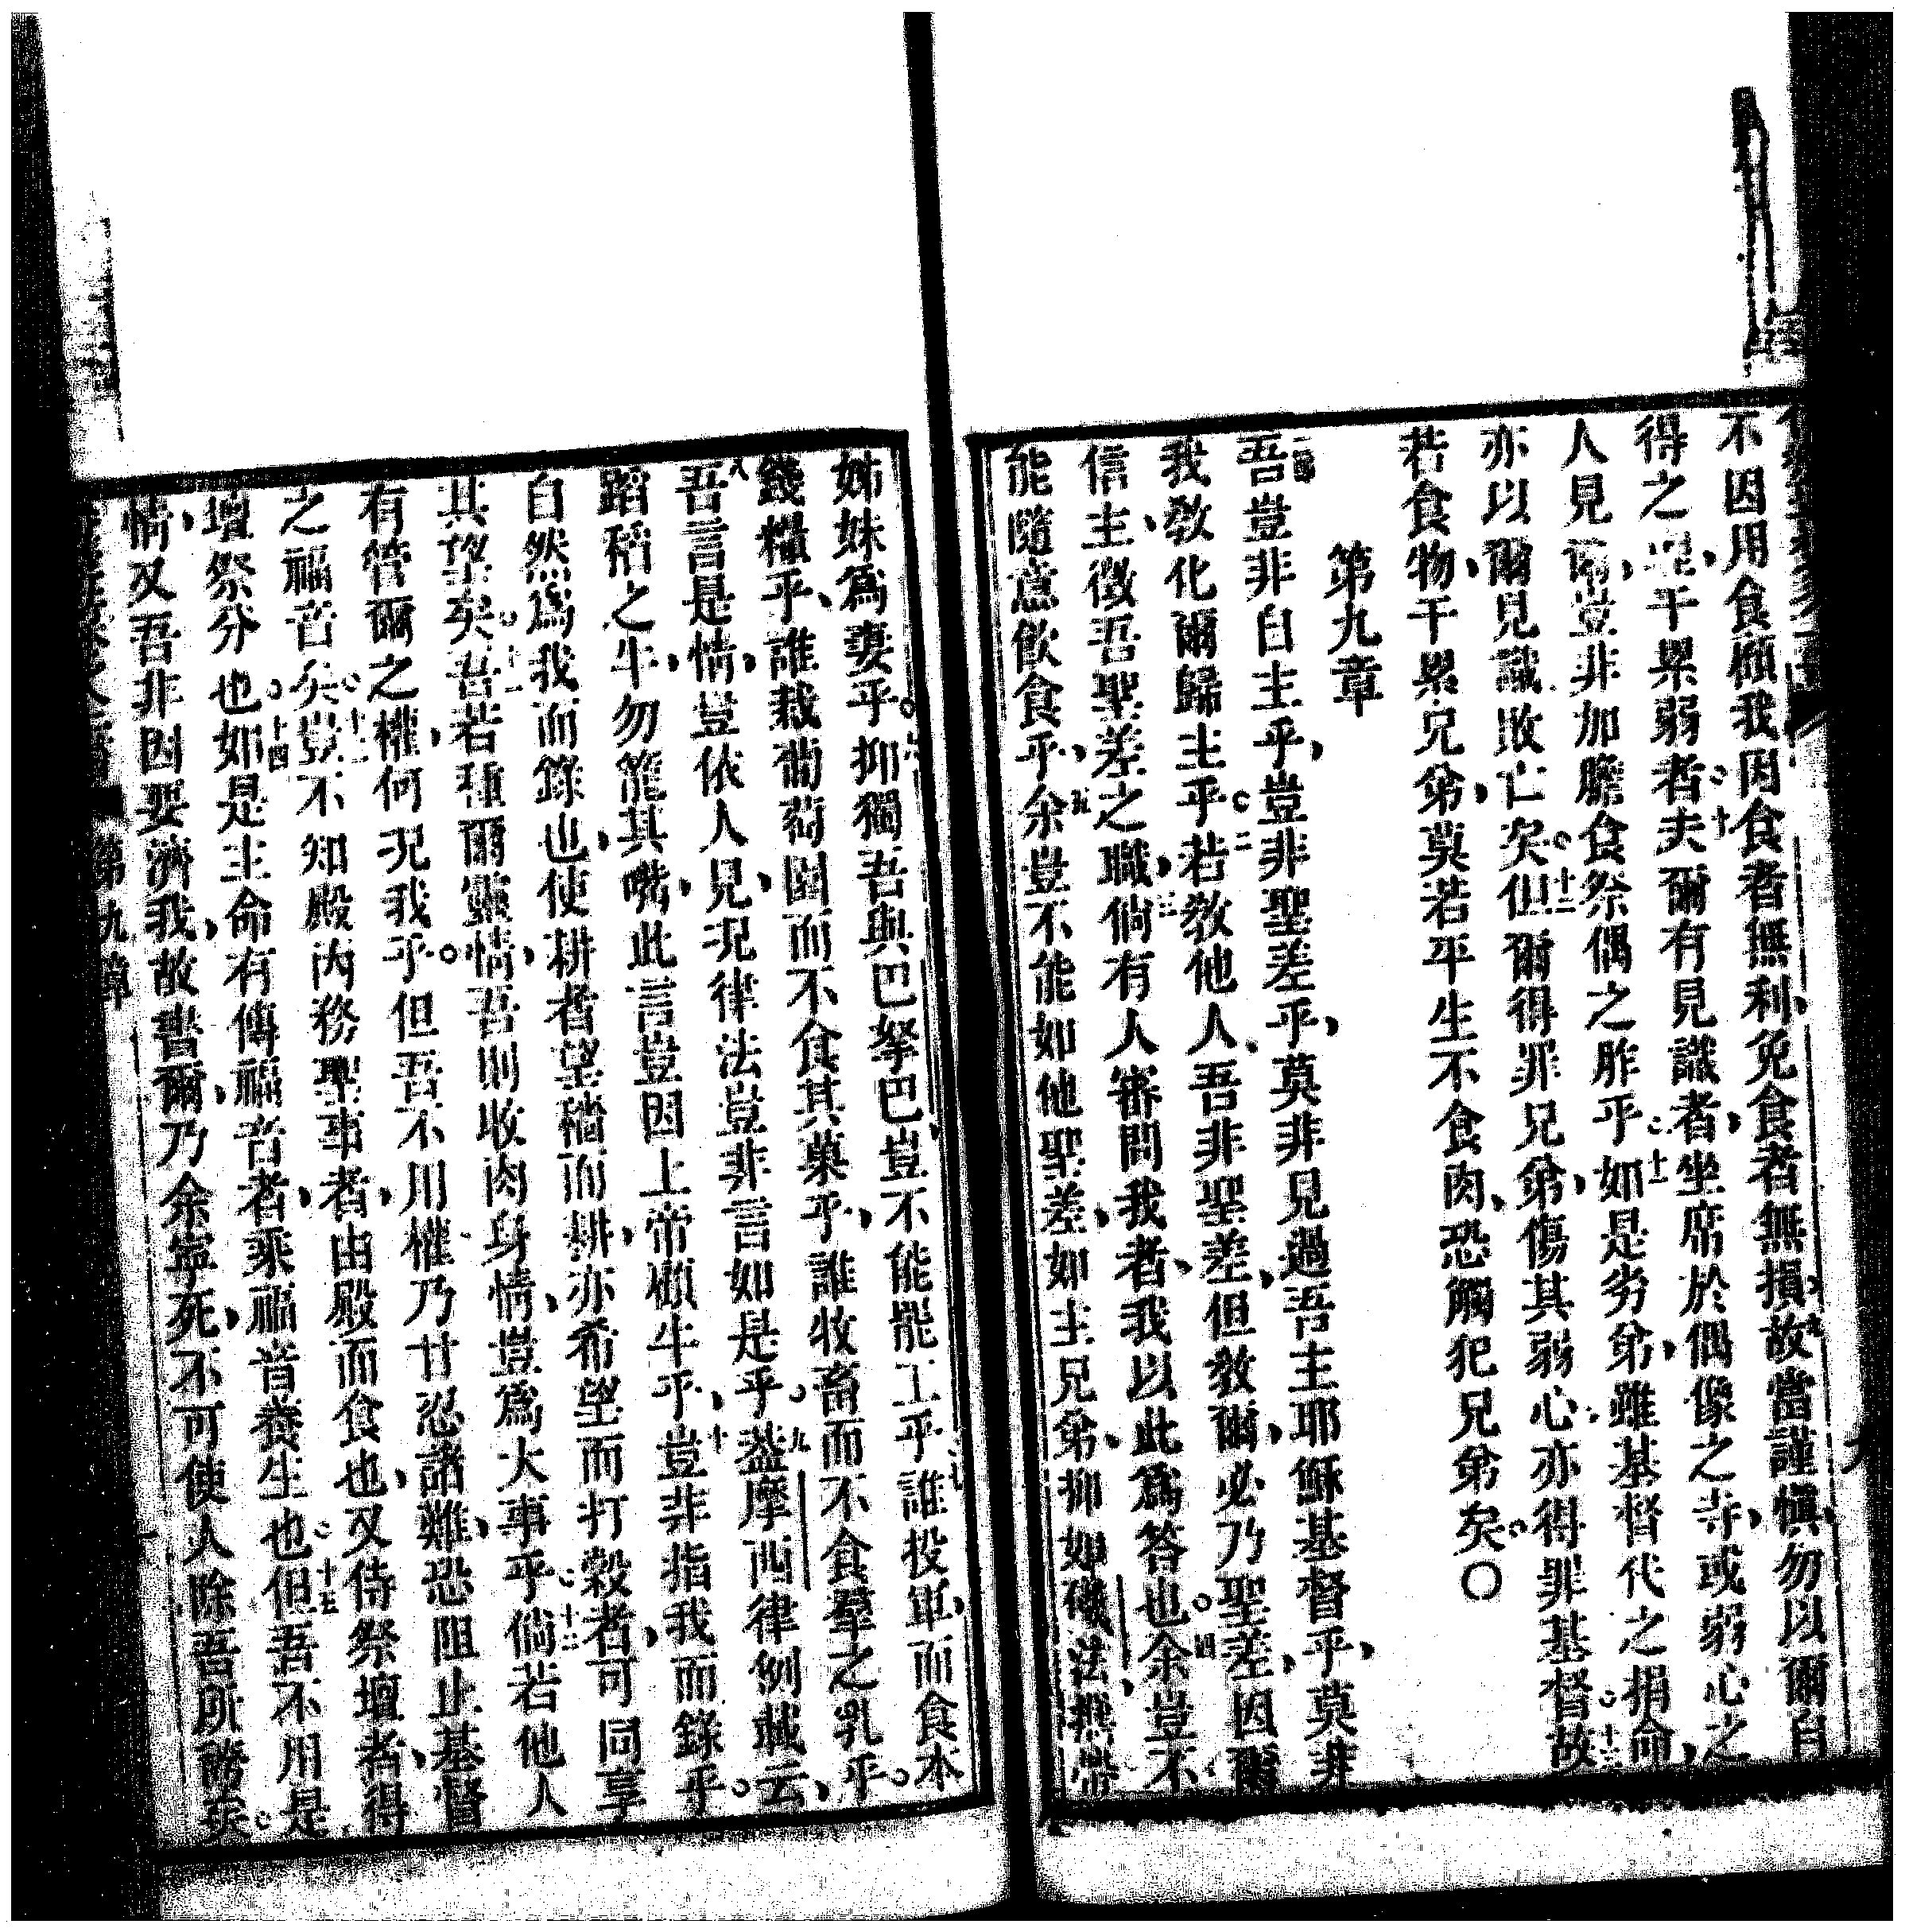 不因用食願我因食者無利、免食者無損、九故當謹慎、勿以爾自
得之 干累弱者。十夫爾有見識者、坐席於偶像之寺、或弱心之
人見爾、豈非加膽食祭偶之胙乎。十一如是劣弟、雖基督代之捐命、
亦以爾見識敗亡矣。十二但爾得罪兄弟、傷其弱心、亦得罪基督。十三故
若食物、干累兄弟、莫若平生不食肉、恐觸犯兄弟矣。〇
第九章
一吾豈非自主乎、豈非聖差乎、莫非見過吾主耶穌基督乎、莫非
我教化爾歸主乎。二若教他人、吾非聖差、但教爾、必乃聖差、因爾
信主、徵吾聖差之職、三倘有人審問我者、我以此為答也。四余豈不
能隨意飲食乎、五余豈不能如他聖差、如主兄弟、抑如磯法攜帶
姊妹為妻乎。六抑獨吾與巴拏巴、豈不能罷工乎。七誰投軍、而食本
錢糧乎、誰栽葡萄園而不食其菓乎、誰牧畜而不食羣之乳乎。
八吾言是情、豈依人見、況律法豈非言如是乎。九蓋摩西律例載云、
蹈稻之牛、勿籠其嘴、此言豈因上帝顧牛乎、十豈非指我而錄乎。
自然為我而錄也、使耕者望穡而耕、亦希望而打穀者、可同享
其望矣。十一吾若種爾靈情、吾則收肉身情、豈為大事乎。十二倘若他人
有管爾之權、何況我乎。但吾不用權、乃甘忍諸難、恐阻止基督
之福音矣。十三豈不知殿內務聖事者、由殿而食也、又侍祭壇者、得
壇祭分也。十四如是主命有傳福音者、乘福音養生也。十五但吾不用是
情、又吾非因要濟我、故書爾、乃余寧死、不可使人除吾所誇矣。
第九章